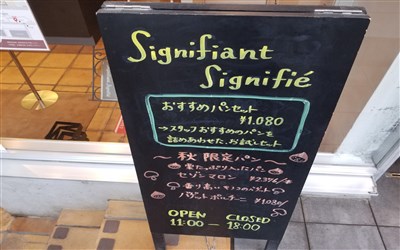 Signifiant
Signifié
おすすめパンセット
¥1.080
→スタッフおすすめのパンを
詰めあわせた、お試しセット
〜秋 限定パン〜
栗たっぷり入ったパン
セゾン マロン
香り高いキノコのバゲット
OPEN CLOSED
11:00 — 18:00